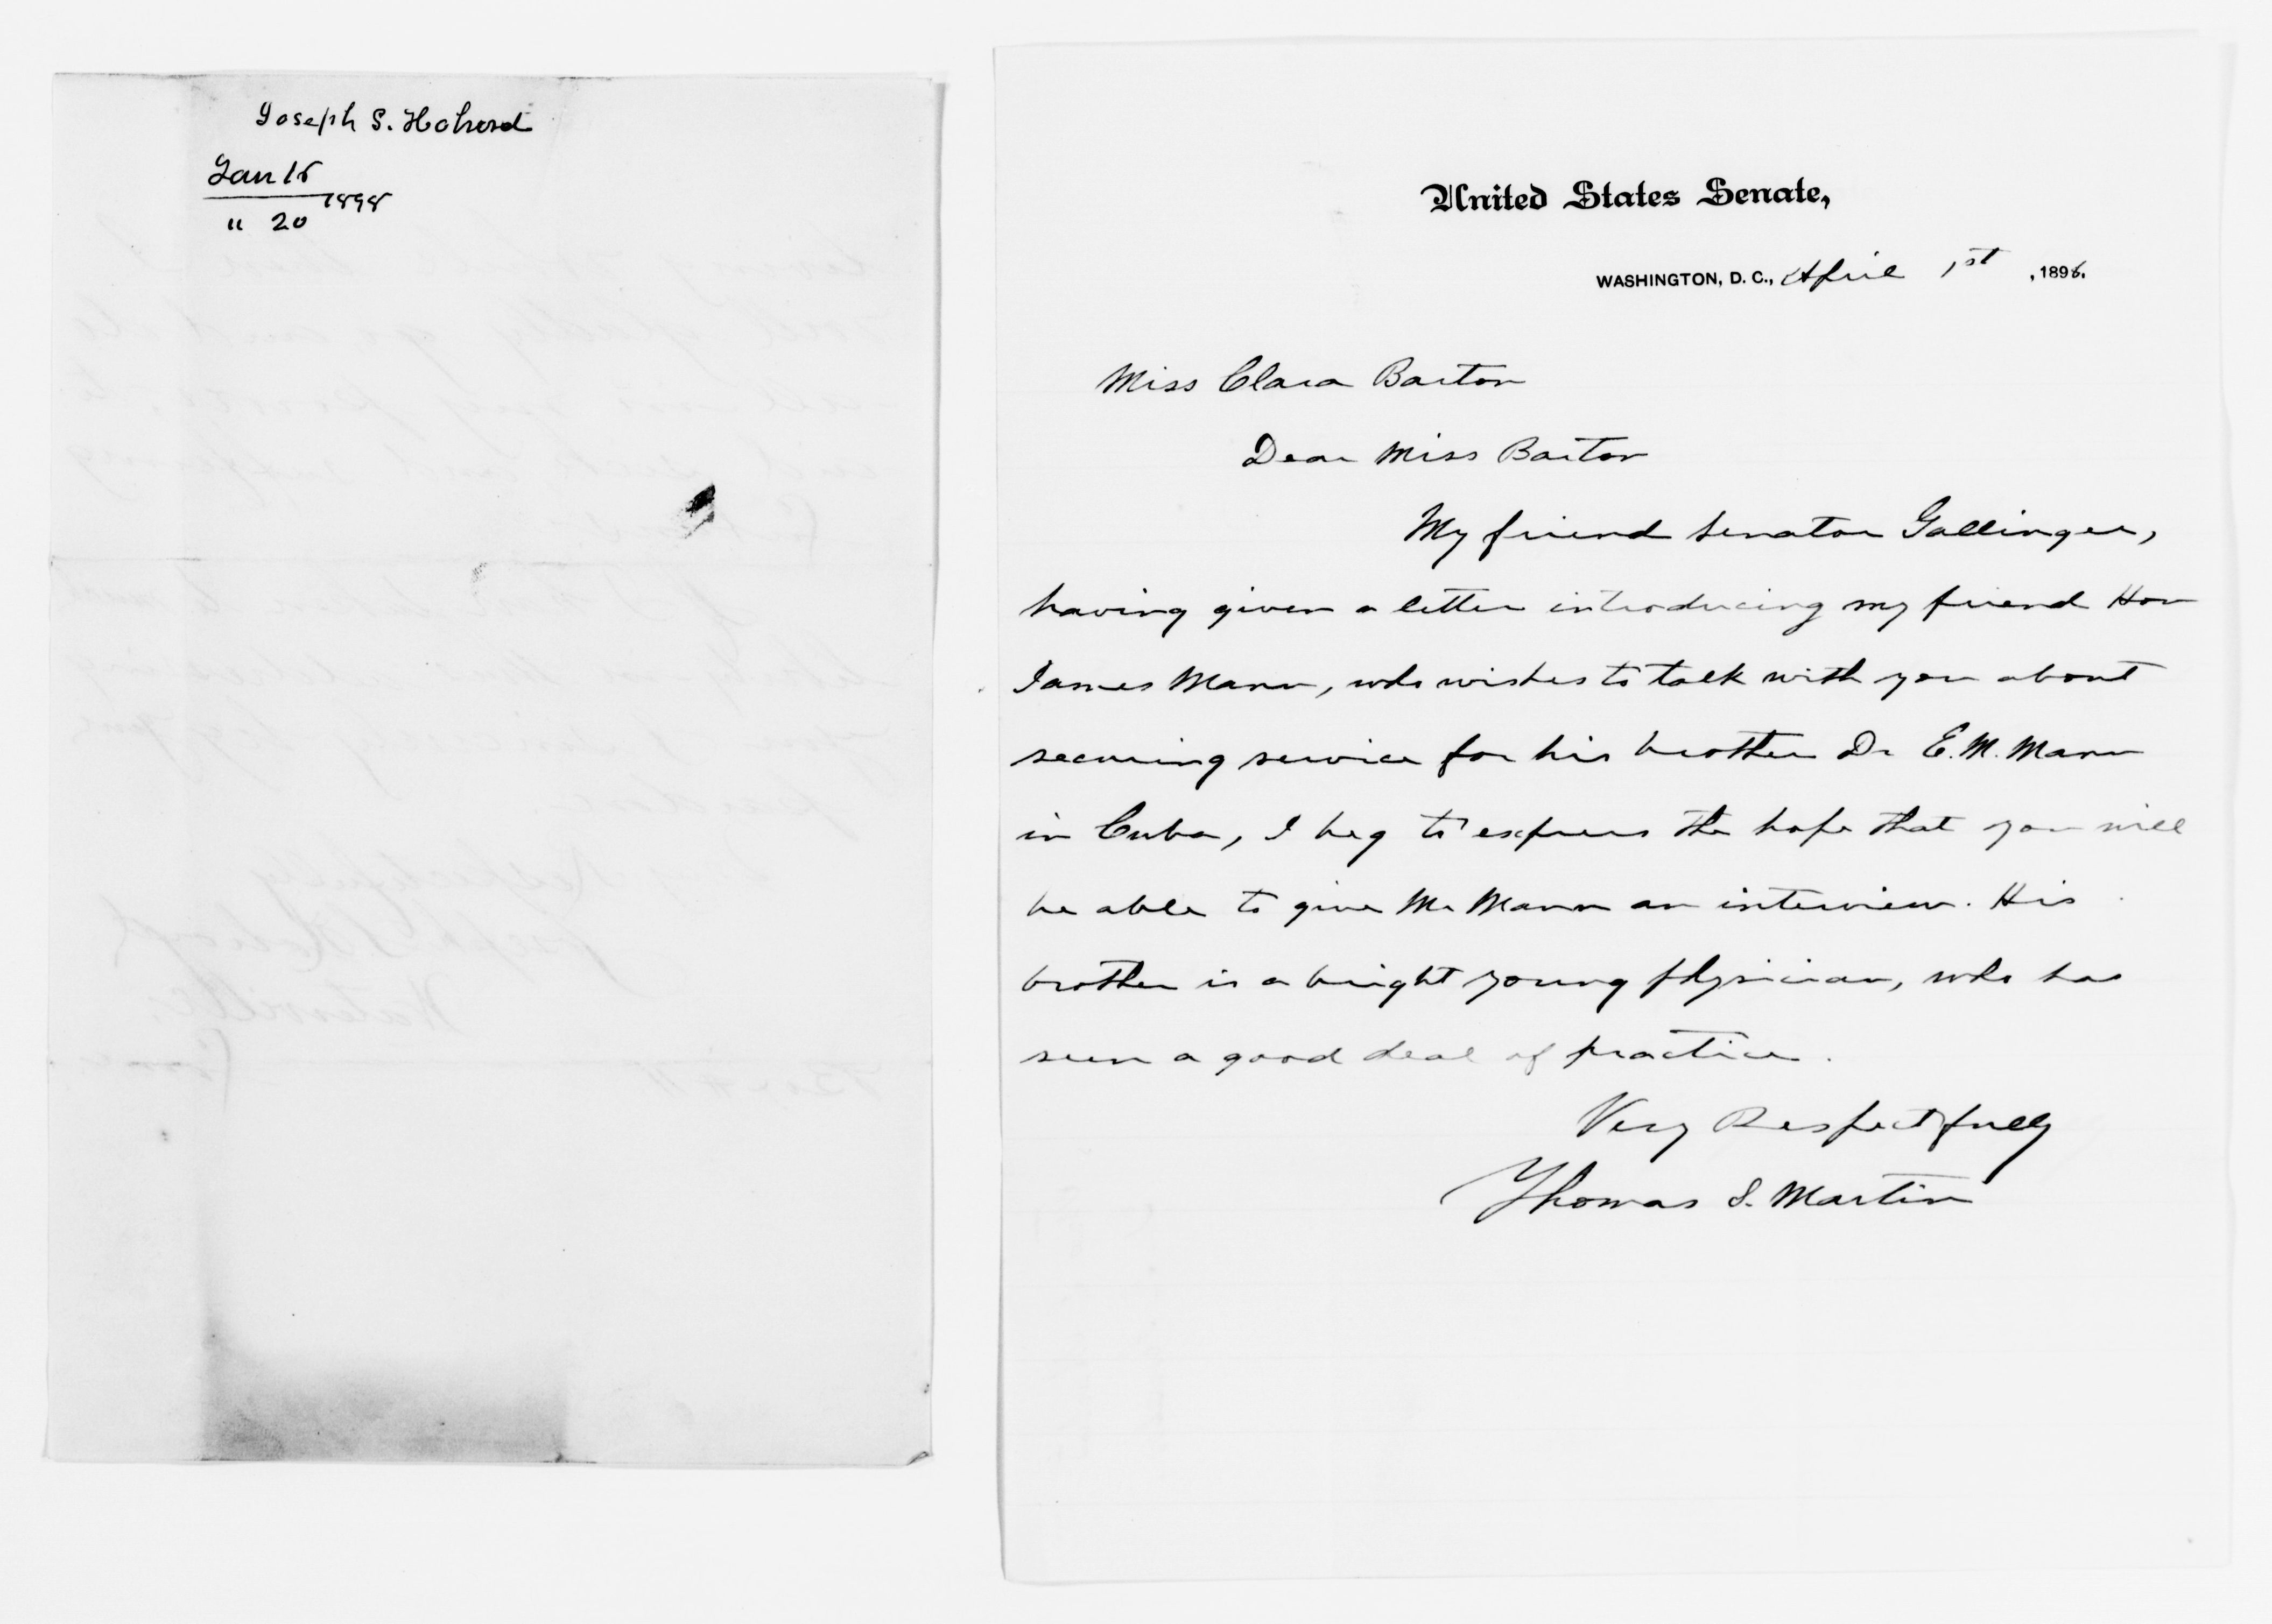 Joseph S. Holrood
Jan 15
" 20 1898
United States Senate,
WASHINGTON, D. C., April 1st, 1898.
Miss Clara Barton
Dear Miss Barton
My friend Senator Gallinger,
having given a letter introducing my friend Hon
James Mann, who wishes to talk with you about
securing service for his brother Dr E. M. Mann
in Cuba, I beg to express the hope that you will
be able to give Mr Mann an interview. His
brother is a bright young physician, who has
seen a good deal of practice.
Very Respectfully
Thomas S. Martin